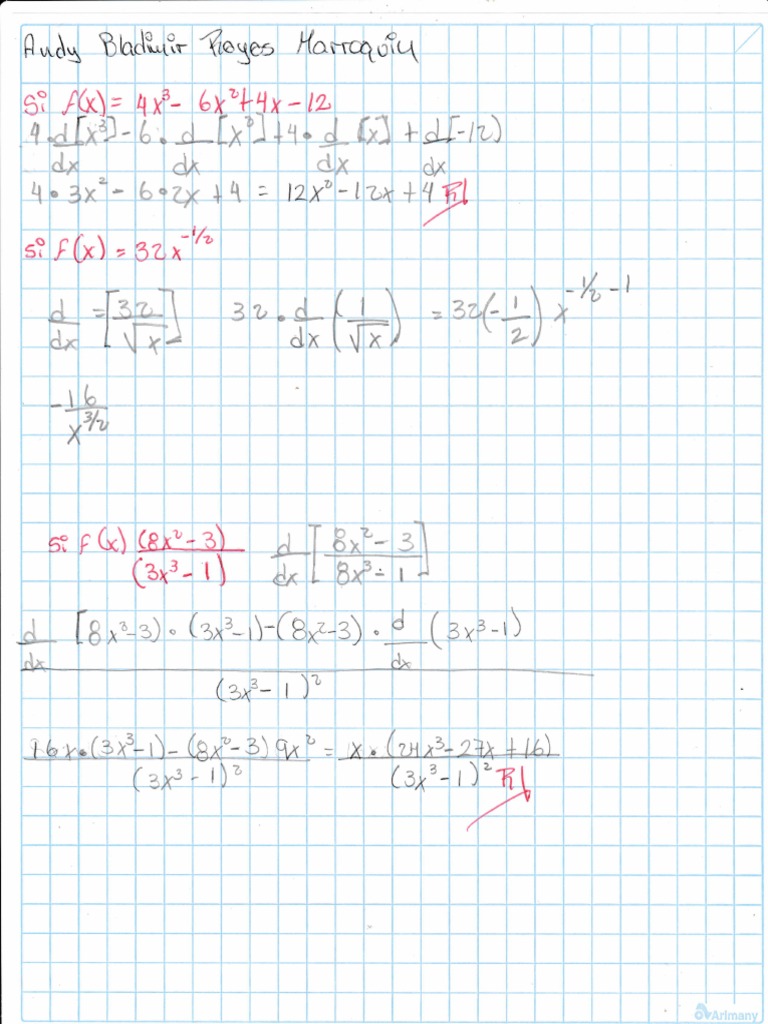 Andy Bladimir Reyes Marroquin
Si f(x) = 4x³ - 6x² + 4x - 12
4 · d/dx [x³] - 6 · d/dx [x²] + 4 · d/dx [x] + d/dx [-12)
4 · 3x² - 6 · 2x + 4 = 12x² - 12x + 4 R|
Si f(x) = 32x^-1/2
d/dx = [32/√x] 32 · d/dx (1/√x) = 32(-1/2) x^-1/2 - 1
-16/x^3/2
Si f(x) (8x² - 3)/(3x³ - 1) d/dx [8x² - 3/8x³ - 1]
d/dx [8x² - 3) · (3x³ - 1) - (8x² - 3) · d/dx (3x³ - 1)
(3x³ - 1)²
16x · (3x³ - 1) - (8x² - 3) 9x² = x · (24x³ - 27x + 16)
(3x³ - 1)² (3x³ - 1)² R|
Arimany